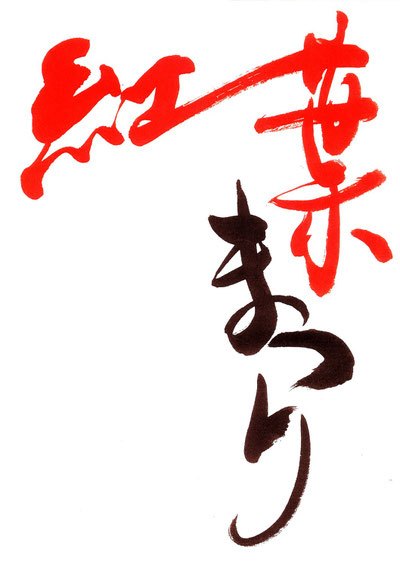 紅葉
まつり